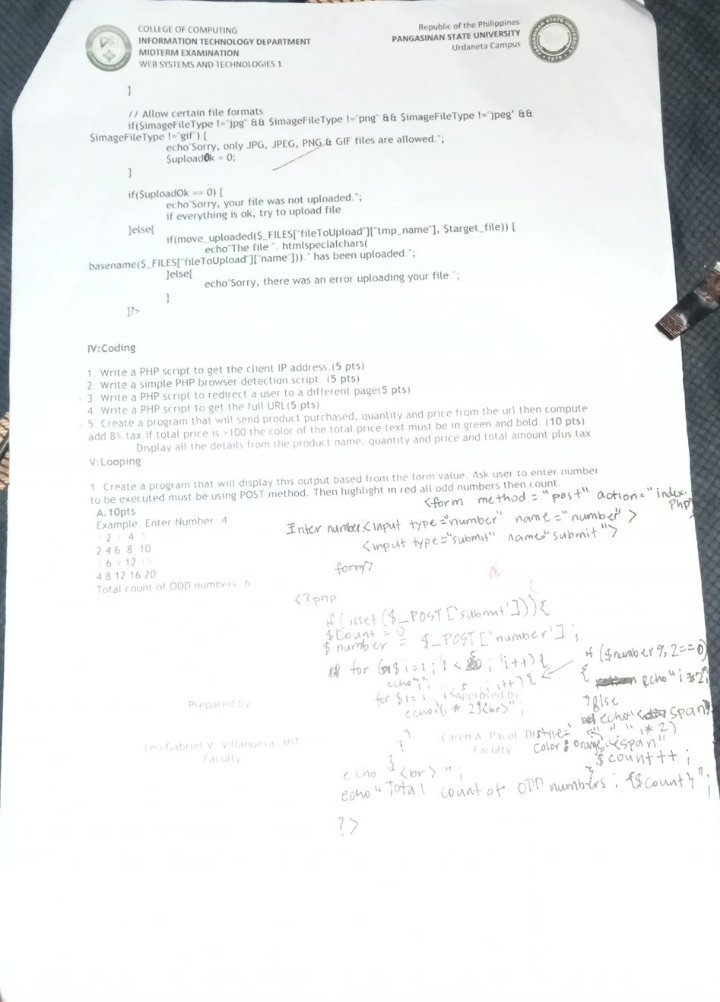 COLLEGE OF COMPUTING
INFORMATION TECHNOLOGY DEPARTMENT
MIDTERM EXAMINATION
WEB SYSTEMS AND TECHNOLOGIES 1
Republic of the Philippines
PANGASINAN STATE UNIVERSITY
Urdaneta Campus
}
// Allow certain file formats
if($imageFileType !="jpg" && $imageFileType !="png" && $imageFileType !="jpeg" &&
$imageFileType !="gif") {
echo"Sorry, only JPG, JPEG, PNG & GIF files are allowed.";
$uploadOk = 0;
}
if($uploadOk == 0) {
echo"Sorry, your file was not uploaded.";
if everything is ok, try to upload file
}else{
if(move_uploaded($_FILES["fileToUpload"]["tmp_name"], $target_file)) {
echo"The file ". htmlspecialchars(
basename($_FILES["fileToUpload"]["name"]))." has been uploaded.";
}else{
echo"Sorry, there was an error uploading your file.";
}
}?>
IV:Coding
1. Write a PHP script to get the client IP address.(5 pts)
2. Write a simple PHP browser detection script. (5 pts)
3. Write a PHP script to redirect a user to a different page(5 pts)
4. Write a PHP script to get the full URL(5 pts)
5. Create a program that will send product purchased, quantity and price from the url then compute
add 8% tax.If total price is >100 the color of the total price text must be in green and bold. (10 pts)
Display all the details from the product name, quantity and price and total amount plus tax
V:Looping
1. Create a program that will display this output based from the form value. Ask user to enter number
to be executed must be using POST method. Then highlight in red all odd numbers then count.
A.10pts
Example: Enter Number: 4
1 2 3 4 5
2 4 6 8 10
3 6 9 12 15
4 8 12 16 20
Total count of ODD numbers: 6
<form method = "post" action = "index.
php
Enter number <input type ="number" name ="number" >
<input type="submit" name="submit">
form>
<?php
if (isset ($_POST ['submit'])){
$count = 0
$number = $_POST ['number'] ;
for ($i=1; i < 5 ; i++) {
if ($number % 2==0)
{ echo "i *2;
}else
echo" <span
style="
color: orange;
" i * 2)
<span"
$count++ ;
}
echo "<br> " ;
echo "Total count of ODD numbers : {$count}" ;
?>
Prepared by
Approved by
Leo Gabriel V. Villanueva, MIT
Faculty
Caren A. Pacol, DIT
Faculty